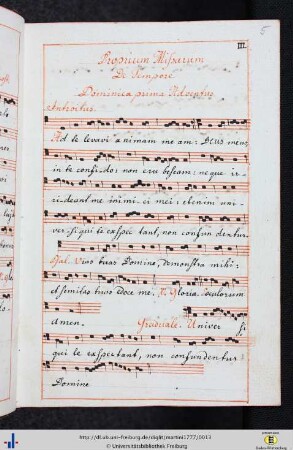 III.
5
Proprium Missarum
De Tempore
Dominica prima Adventus
Introitus
Ad te levavi animam me am: Deus meus
in te confido: non eru bescam: neque ir-
rideant me inimi ci mei: etenim uni-
ver si qui te exspec tant, non confun dentur.
Psal. Vias tuas Domine, demonstra mihi:
et semitas tuas edoce me. V. Gloria. seculorum
Amen. Graduale. Univer si
qui te exspectant, non confundentur
Domine
http://dl.ub.uni-freiburg.de/diglit/martini1777/0013
© Universitätsbibliothek Freiburg